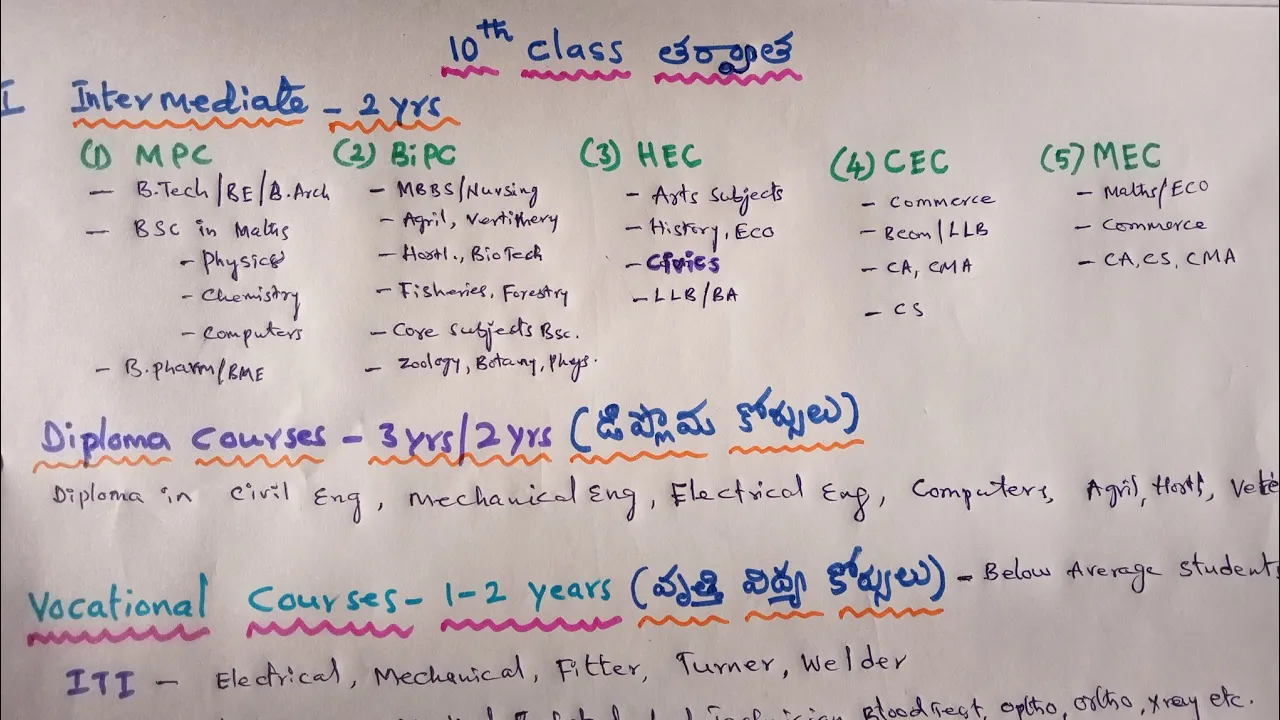 10th class తర్వాత
I Intermediate - 2 yrs
(1) MPC
- B.Tech/BE/B.Arch
- BSC in Maths
- Physics
- Chemistry
- Computers
- B.pharm/BME
(2) BiPC
- MBBS/Nursing
- Agril, Vertinery
- Hortl., BioTech
- Fisheries, Forestry
- Core Subjects Bsc.
- Zoology, Botany, Phys.
(3) HEC
- Arts Subjects
- History, ECO
- Civics
- LLB/BA
(4) CEC
- Commerce
- Bcom/LLB
- CA, CMA
- CS
(5) MEC
- Maths/ECO
- Commerce
- CA, CS, CMA
Diploma Courses - 3 yrs/2 yrs (డిప్లొమ కోర్సులు)
Diploma in Civil Eng, Mechanical Eng, Electrical Eng, Computers, Agril, Hortl,
Vocational Courses - 1-2 years (వృత్తి విద్యా కోర్సులు) - Below Average Students
ITI - Electrical, Mechanical, Fitter, Turner, Welder
Technician Blood Test, optho, ortho, xray etc.